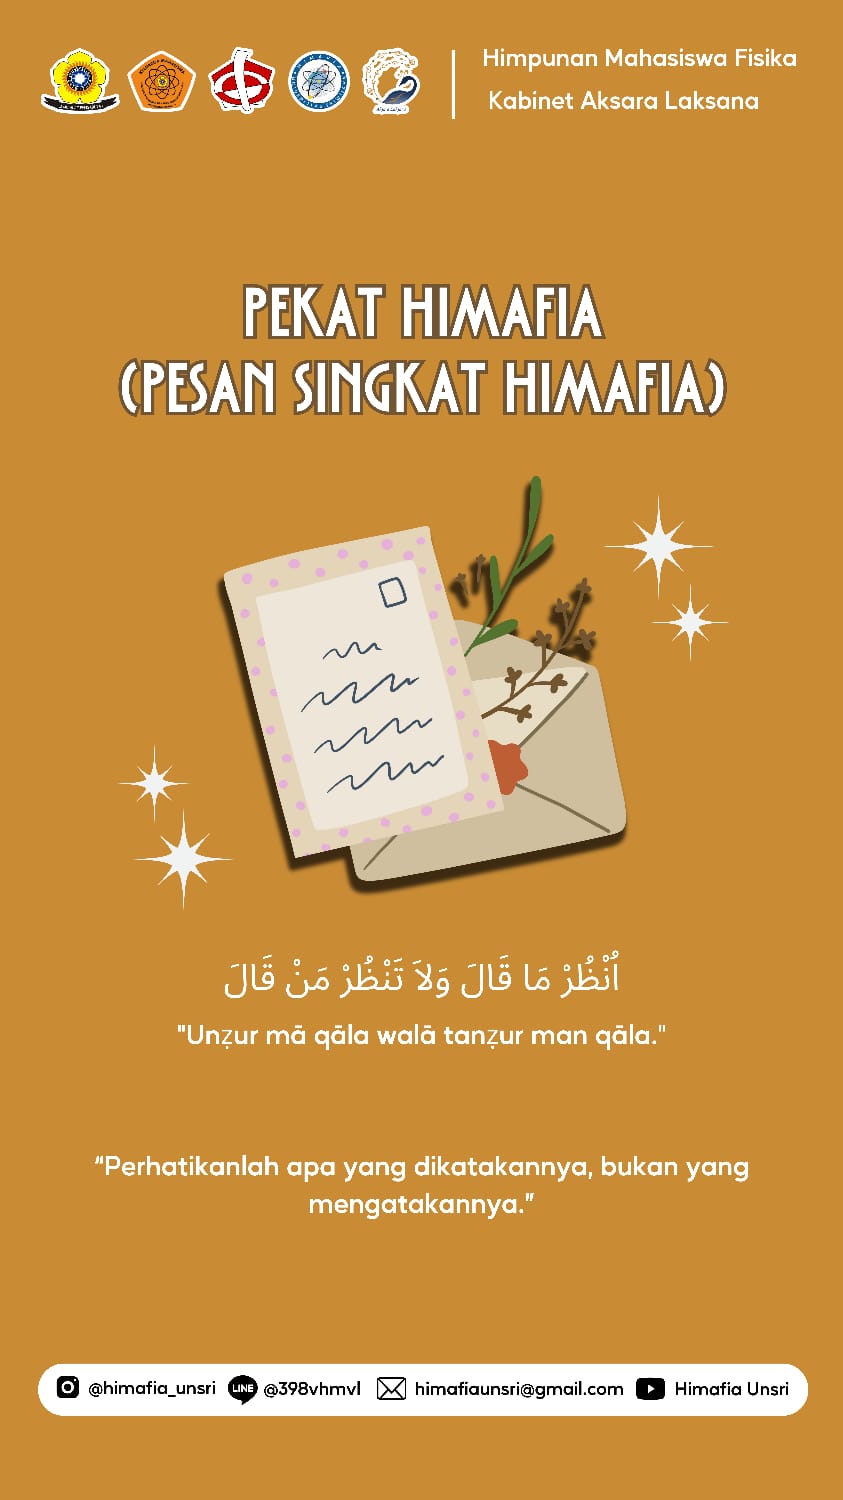 Himpunan Mahasiswa Fisika
Kabinet Aksara Laksana
PEKAT HIMAFIA
(PESAN SINGKAT HIMAFIA)
اُنْظُرْ مَا قَالَ وَلاَ تَنْظُرْ مَنْ قَالَ
"Unẓur mā qāla walā tanẓur man qāla."
“Perhatikanlah apa yang dikatakannya, bukan yang
mengatakannya.”
@himafia_unsri LINE @398vhmvl himafiaunsri@gmail.com Himafia Unsri